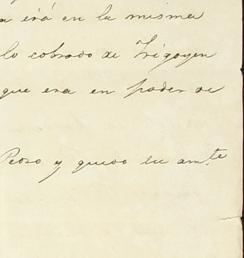 a irá en la misma
lo cobrado de Irigoyen
que era en poder de
Pedro y quedo su am.te